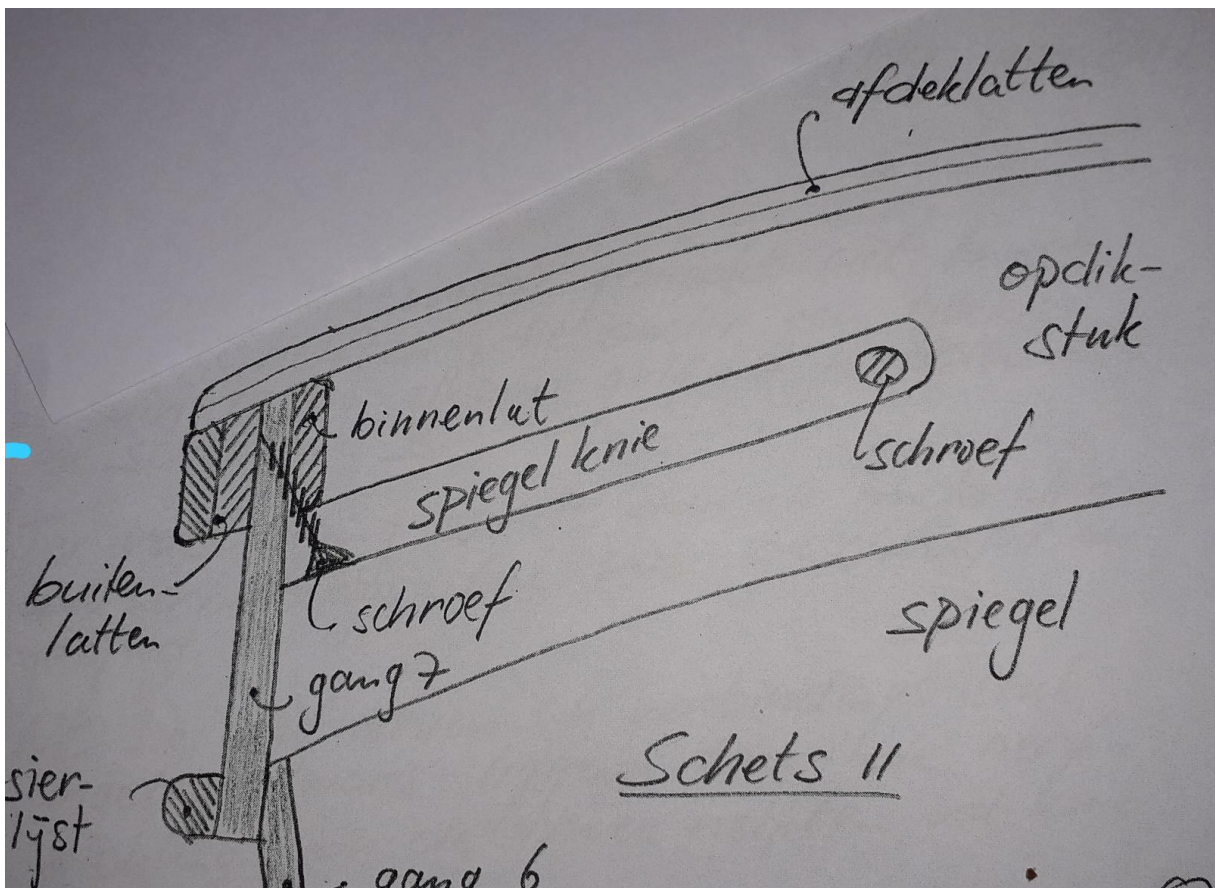 afdeklatten
opdik-
stuk
binnenlat
spiegel knie
schroef
buiten-
latten
schroef
spiegel
gang 7
Schets II
sier-
lijst
gang 6